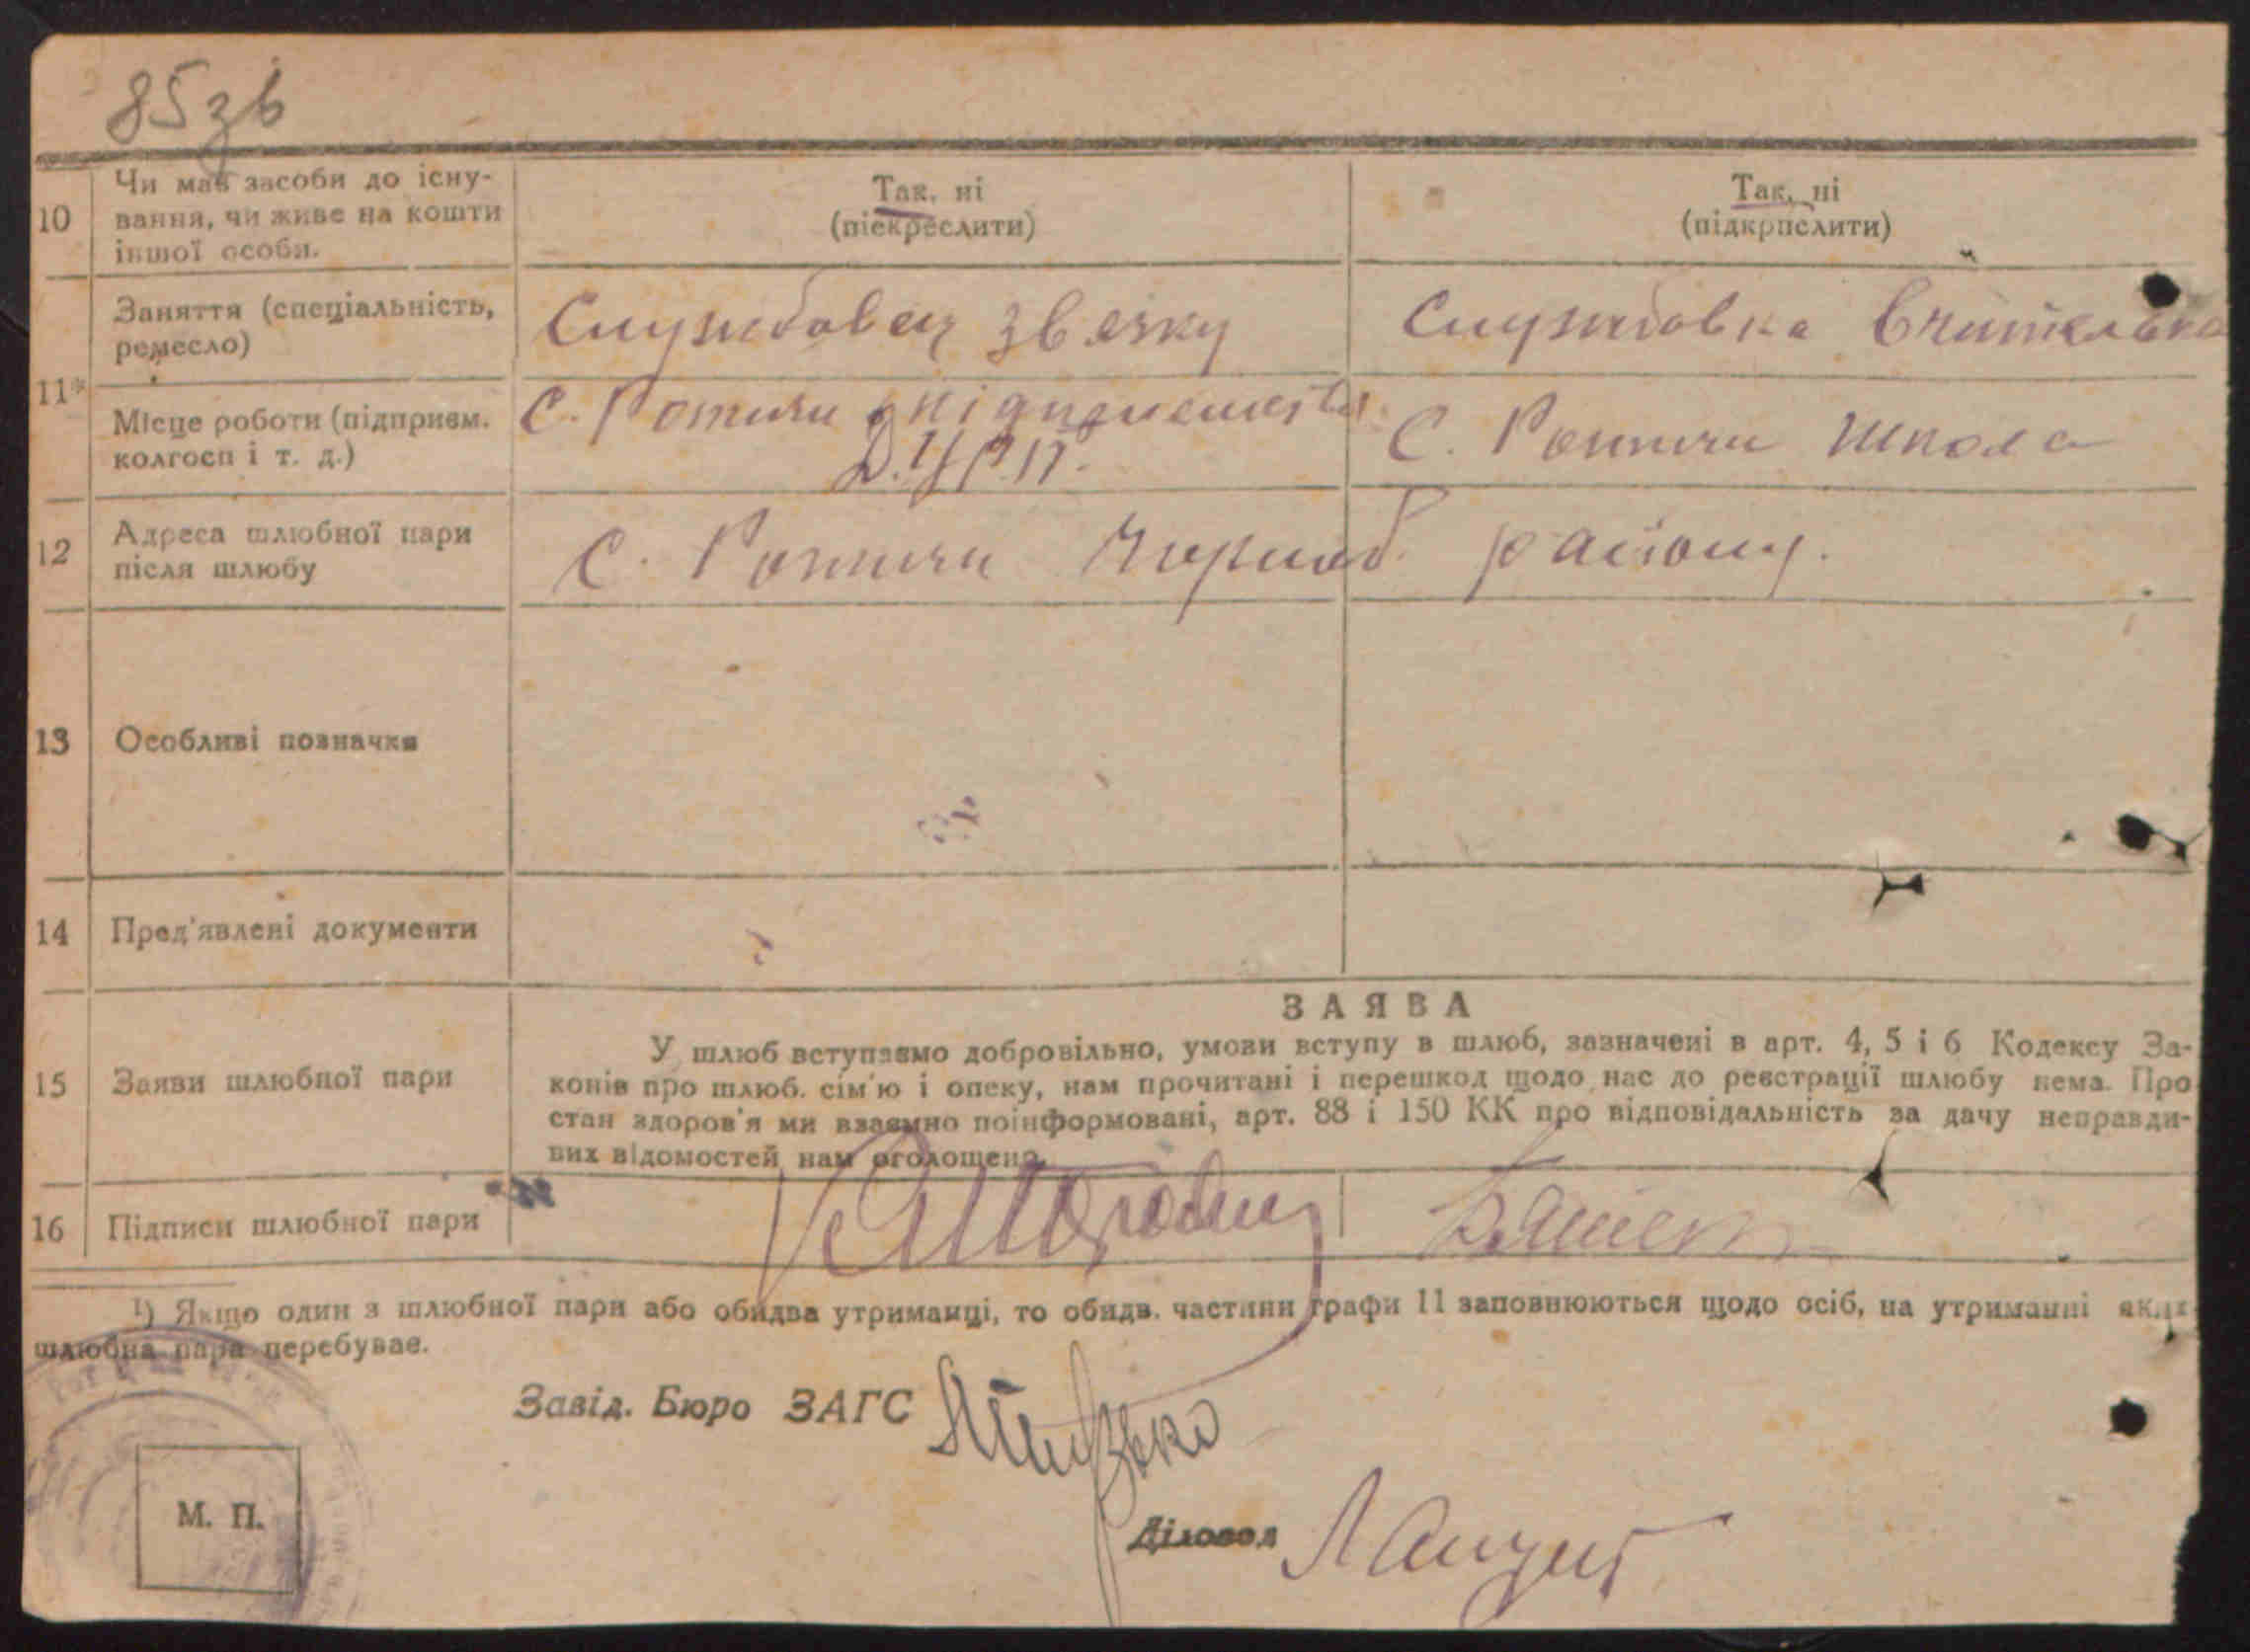 85 зв
10
Чи має засоби до існу-
вання, чи живе на кошти
іншої особи.
Так, ні
(піскреслити)
Так, ні
(підкрпслити)
11*
Заняття (спеціальність,
ремесло)
Службовец звязку
Службовка вчителька
Місце роботи (підприєм.
колгосп і т. д.)
С. Ротичи
С. Ротичи школа
12
Адреса шлюбної пари
після шлюбу
С. Ротичи Чорноб. району.
13
Особливі позначки
14
Пред'явлені документи
15
Заяви шлюбної пари
ЗАЯВА
У шлюб вступаємо добровільно, умови вступу в шлюб, зазначені в арт. 4, 5 і 6 Кодексу За-
конів про шлюб. сім'ю і опеку, нам прочитані і перешкод щодо нас до реєстрації шлюбу нема. Про
стан здоров'я ми взаємно поінформовані, арт. 88 і 150 КК про відповідальність за дачу неправди-
вих відомостей нам оголошено.
16
Підписи шлюбної пари
¹) Якщо один з шлюбної пари або обидва утриманці, то обидв. частини графи 11 заповнюються щодо осіб, на утриманні яких
шлюбна пара перебуває.
Завід. Бюро ЗАГС
Діловод
М. П.